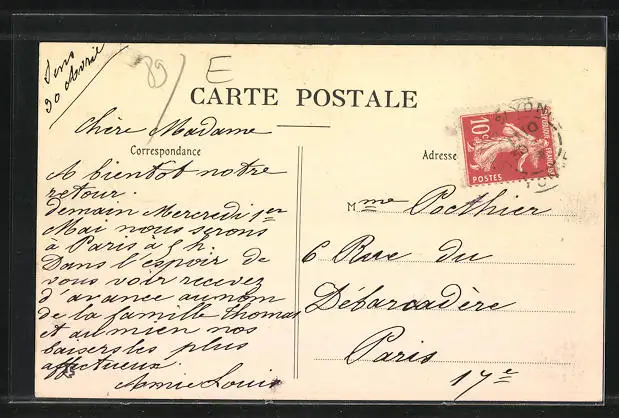 Sens
30 Avril
89 E
CARTE POSTALE
Chère Madame
Correspondance
Adresse
A bientot notre
retour.
demain Mercredi 1er
Mai nous serons
à Paris à 5 h.
Dans l'espoir de
vous voir recevez
d'avance au nom
de la famille Thomas
et au mien nos
baisers les plus
affectueux.
Louis
Mme Pocthier
6 Rue du
Débarcadère
Paris
17e
10c
POSTES
YONNE